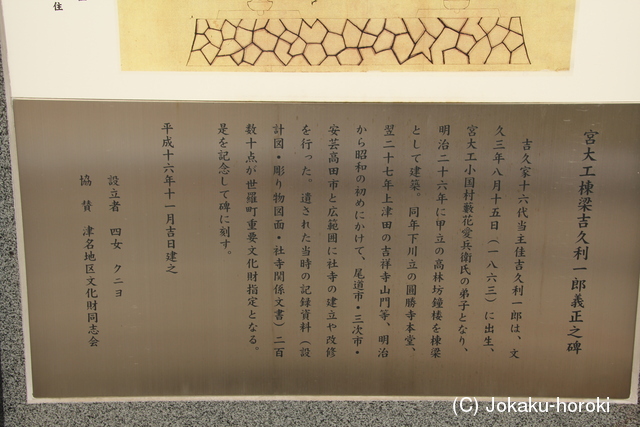 住
宮大工棟梁吉久利一郎義正之碑
吉久家十六代当主佳吉久利一郎は、文
久三年八月十五日(一八六三)に出生、
宮大工小国村藪花愛兵衛氏の弟子となり、
明治二十六年に甲立の高林坊鐘楼を棟梁
として建築。同年下川立の圓勝寺本堂、
翌二十七年上津田の吉祥寺山門等、明治
から昭和の初めにかけて、尾道市・三次市・
安芸高田市と広範囲に社寺の建立や改修
を行った。遺された当時の記録資料(設
計図・彫り物図面・社寺関係文書)二百
数十点が世羅町重要文化財指定となる。
是を記念して碑に刻す。
平成十六年十一月吉日建之
設立者 四女 クニヨ
協賛 津名地区文化財同志会
(C) Jokaku-horoki